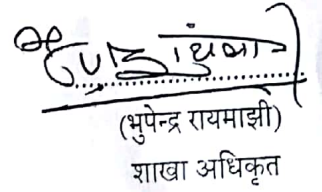 (भुपेन्द्र रायमाझी)
शाखा अधिकृत